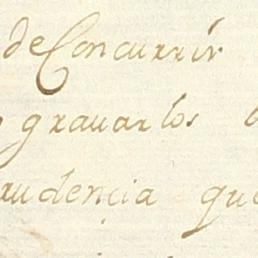 de Concurrir
grauarlos
rudencia que